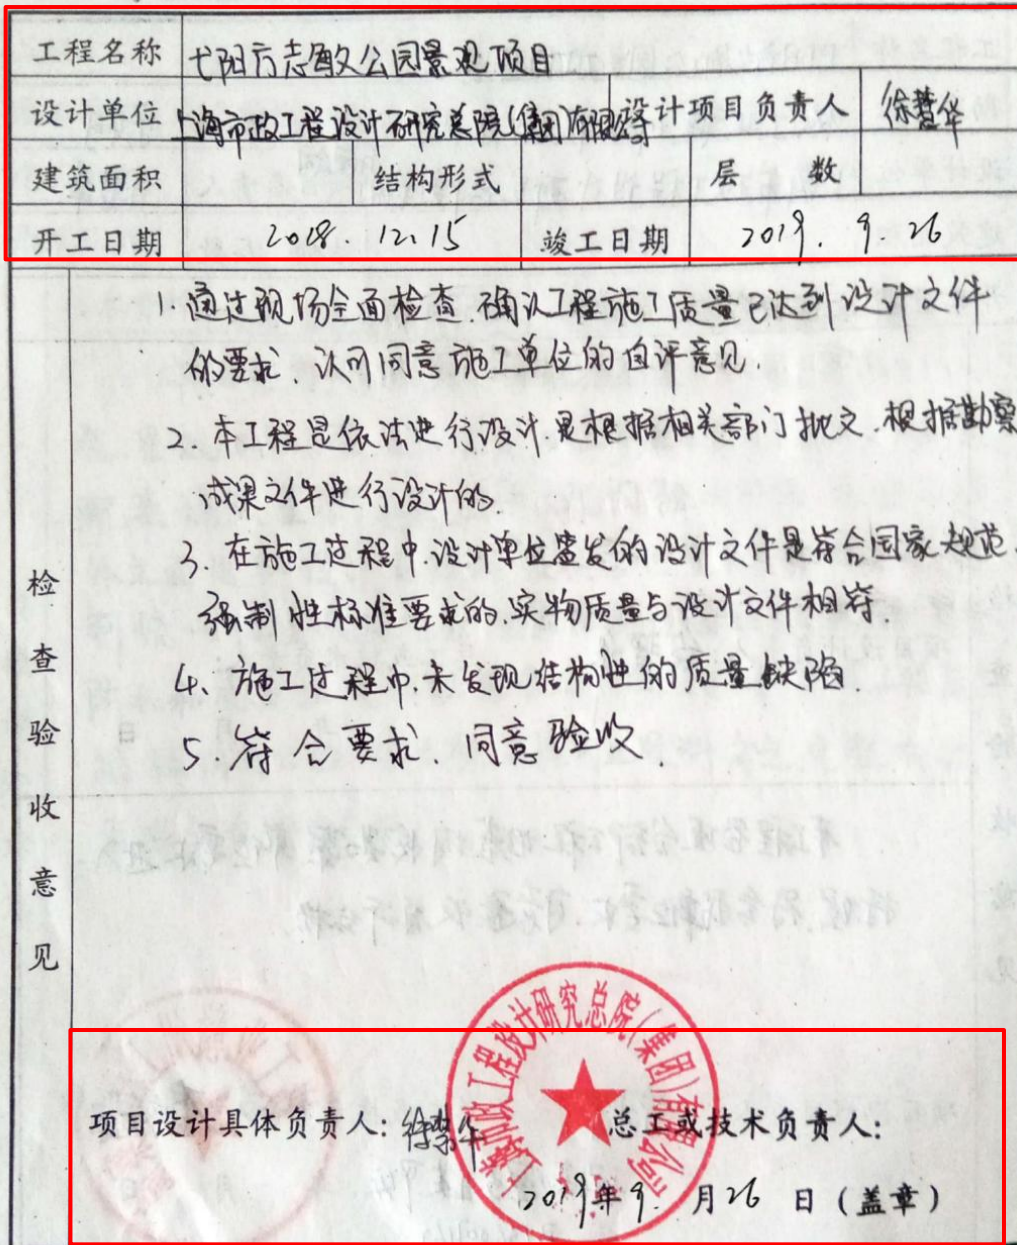 工程名称 弋阳方志敏公园景观项目
设计单位 上海市政工程设计研究总院(集团)有限公司 设计项目负责人 徐慧华
建筑面积 结构形式 层 数
开工日期 2018. 12. 15 竣工日期 2019. 9. 26
检查验收意见
1. 通过现场全面检查, 确认工程施工质量已达到设计文件
的要求、认可同意施工单位的自评意见.
2. 本工程是依法进行设计, 是根据相关部门批文、根据勘察
成果文件进行设计的.
3. 在施工过程中, 设计单位签发的设计文件是符合国家规范、
强制性标准要求的, 实物质量与设计文件相符.
4、施工过程中, 未发现结构性的质量缺陷.
5. 符合要求、同意验收.
上海市政工程设计研究总院(集团)有限公司
项目设计具体负责人: 徐慧华 总工或技术负责人:
2019年9月26日(盖章)